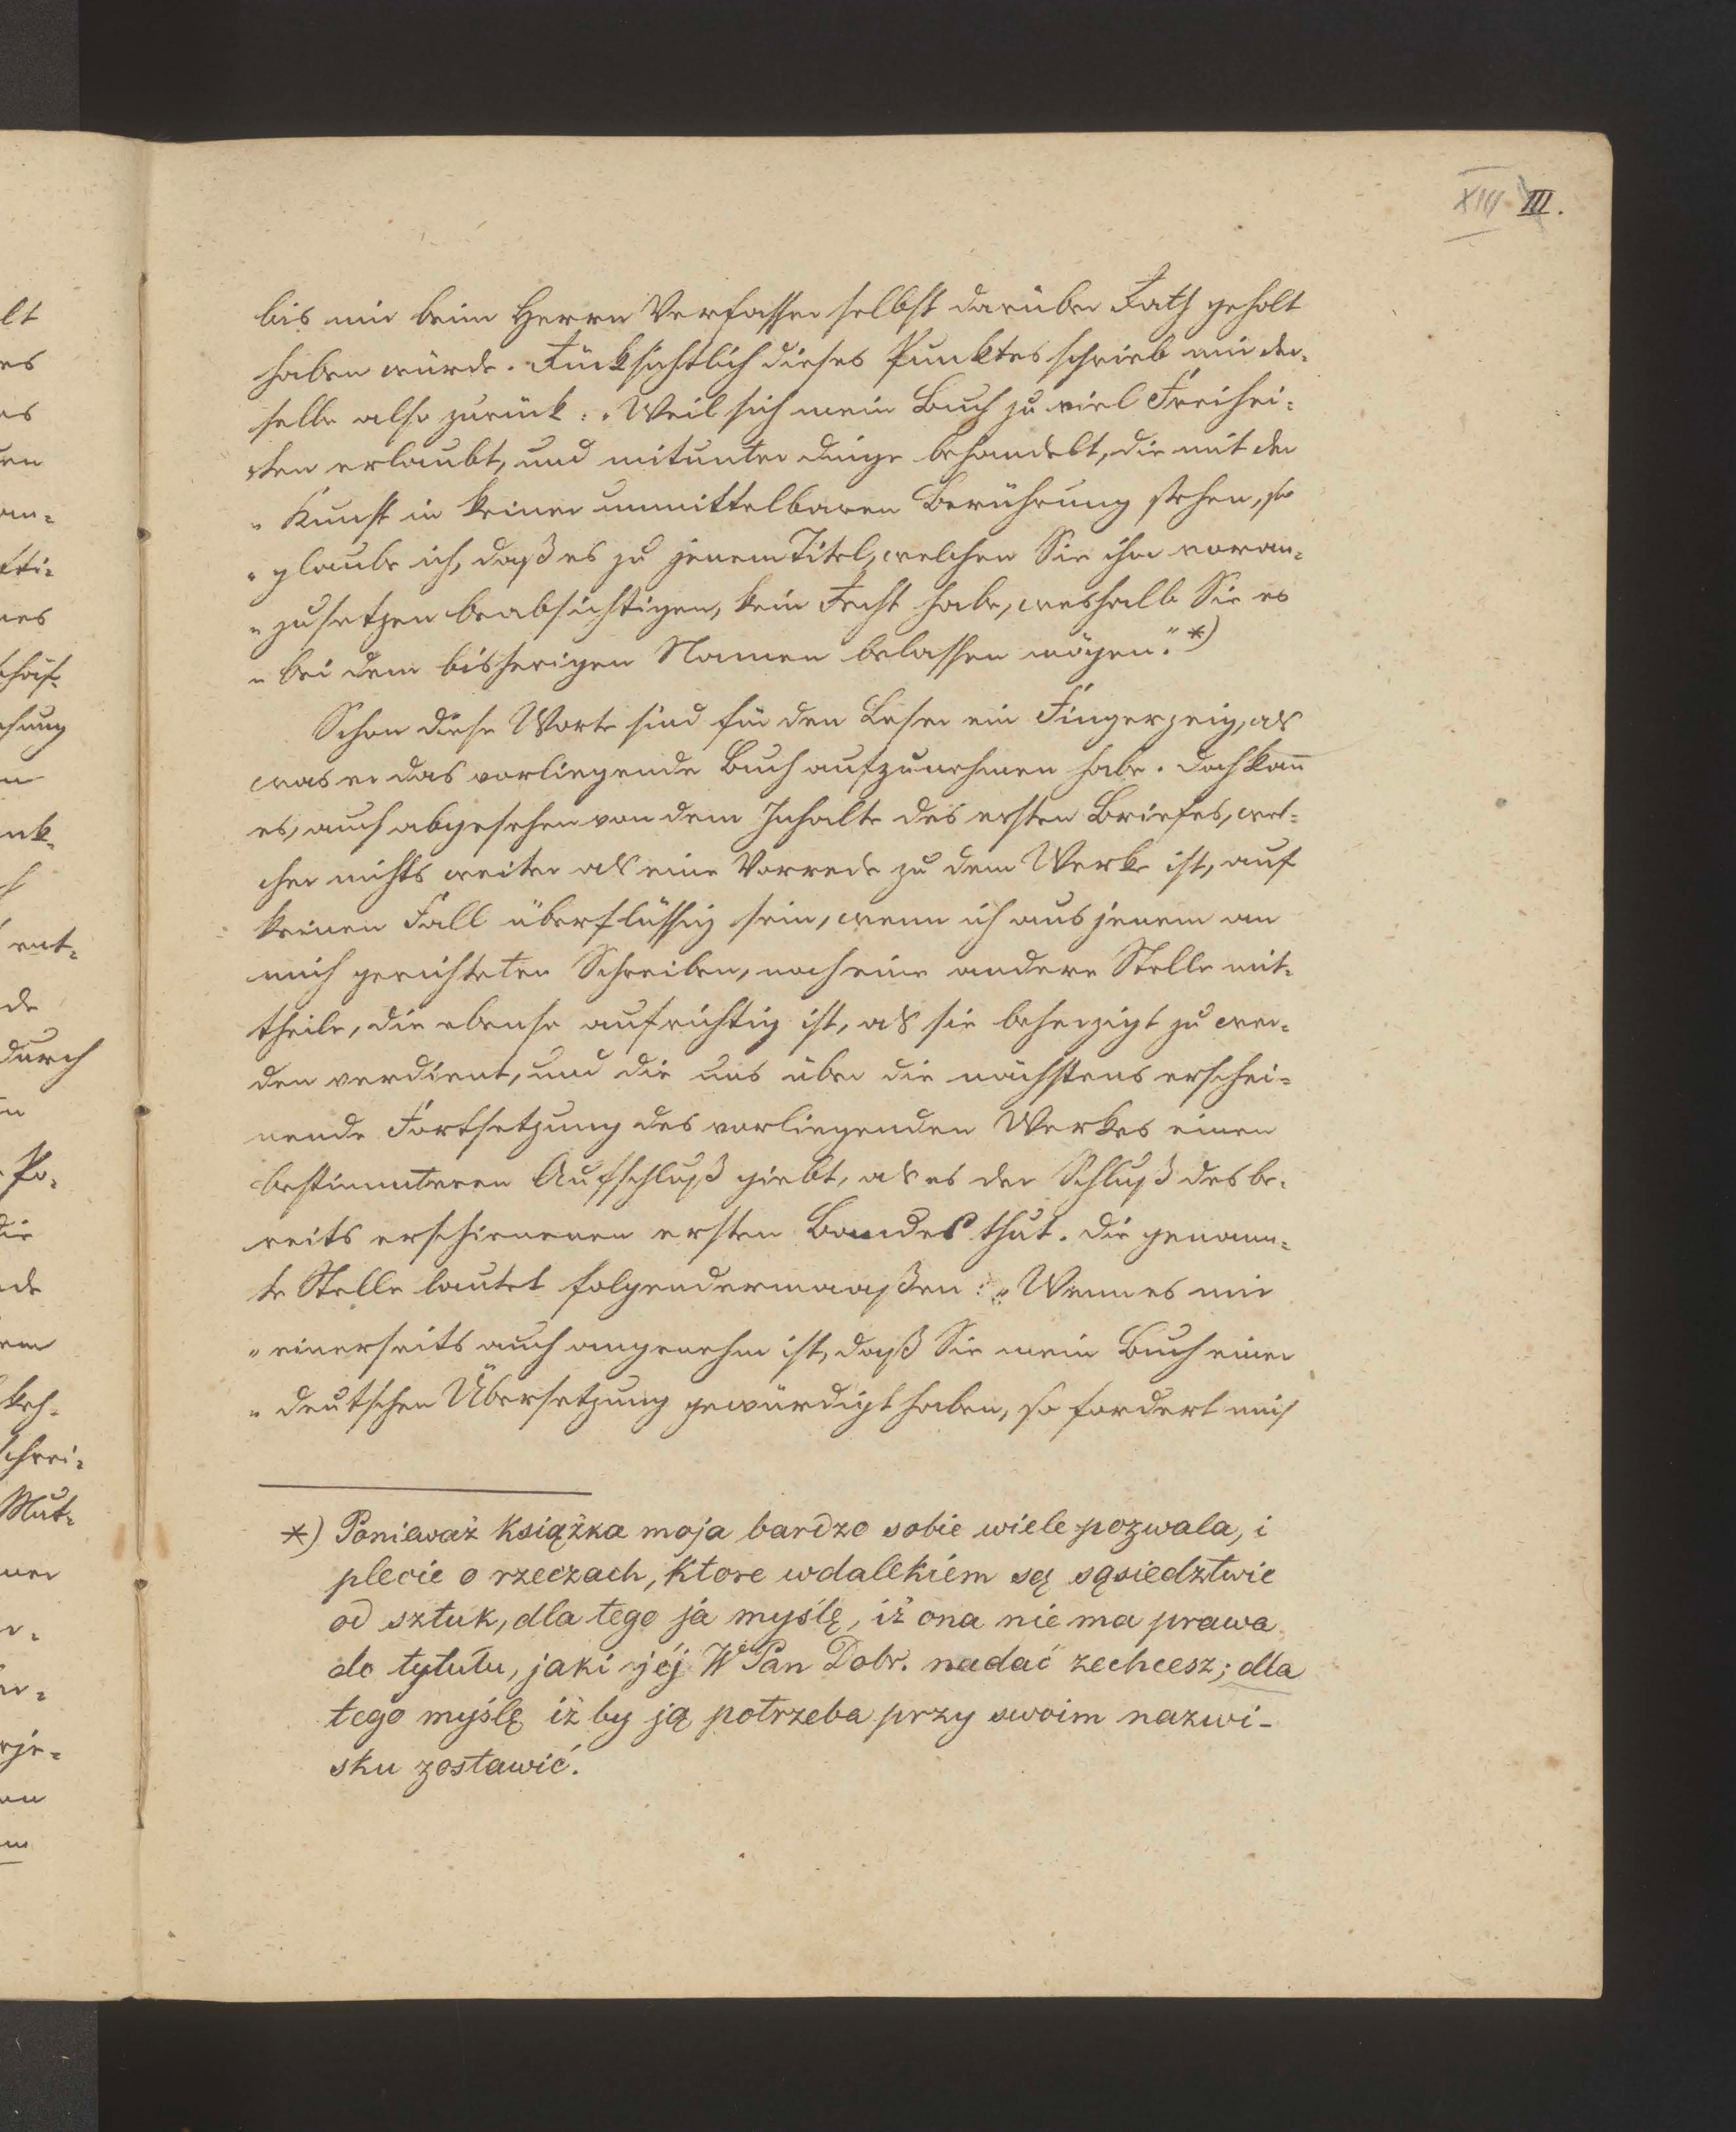 XIII III.
bis mir beim Herrn Verfasser selbst darüber Rath geholt
haben würde. Rücksichtlich dieses Punktes schrieb mir der-
selbe also zurück: „Weil sich mein Buch zu viel Freihei-
„ten erlaubt, und mitunter Dinge behandelt, die mit der
„Kunst in keiner unmittelbaren Berührung stehen, so
„glaube ich, daß es zu jenem Titel, welchen Sie ihm voran-
„zusetzen beabsichtigen, kein Recht habe, weshalb Sie es
„bei dem bisherigen Namen belassen mögen." *)
Schon diese Worte sind für den Leser ein Fingerzeig, als
was er das vorliegende Buch aufzunehmen habe. Doch kañ
es, auch abgesehen von dem Inhalte des ersten Briefes, wel-
cher nichts weiter als eine Vorrede zu dem Werke ist, auf
keinen Fall überflüssig sein, wenn ich aus jenem an
mich gerichteten Schreiben, noch eine andere Stelle mit-
theile, die ebenso aufrichtig ist, als sie beherzigt zu wer-
den verdient, und die uns über die nächstens erschei-
nende Fortsetzung des vorliegenden Werkes einen
bestimmteren Aufschluß giebt, als es der Schluß des be-
reits erschienenen ersten Bandes thut. Die genann-
te Stelle lautet folgendermaaßen: „Wenn es mir
„einerseits auch angenehm ist, daß Sie mein Buch einer
„deutschen Übersetzung gewürdigt haben, so fordert mich
*) Ponieważ książka moja bardzo sobie wiele pozwala, i
plecie o rzeczach, ktore w dalekiém są sąsiedztwie
od sztuk, dla tego ja myślę, iż ona nie ma prawa
do tytułu, jaki jéj W Pan Dobr. nadać zechcesz; dla
tego myślę iż by ją potrzeba przy swoim nazwi-
sku zostawić.